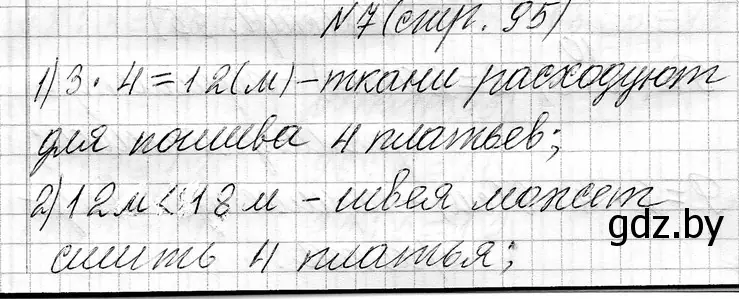 N7 (стр. 95)
1) 3 · 4 = 12 (м) – ткани расходуют
для пошива 4 платьев;
2) 12 м < 18 м – швея может
сшить 4 платья;
gdz.by